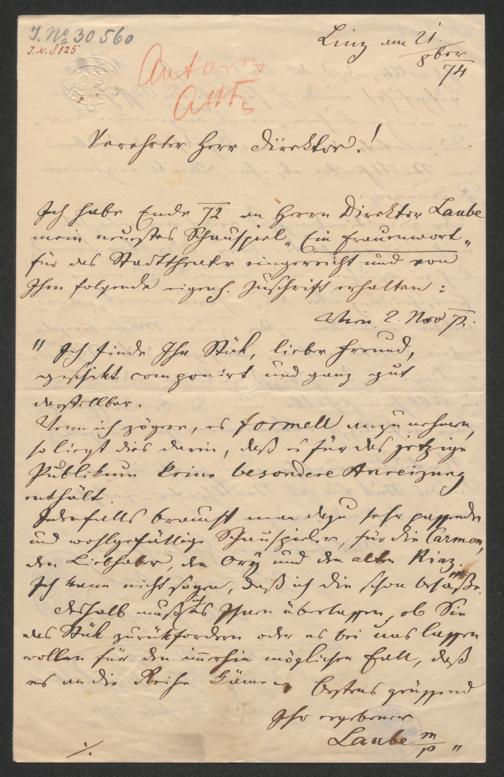 J. No 30560
J.N. 8125
Linz am 21/8ber
74
Anton
Verehrter Herr Direktor!
Ich habe Ende 72 an Herrn Direktor Laube
mein neuestes Schauspiel „Ein Frauenwort“
für das Stadttheater eingereicht und von
Ihm folgende eigenh. Zuschrift erhalten:
Wien 2. Nov 72.
"Ich finde Ihr Stük, lieber Freund,
geschikt componirt und ganz gut
darstellbar.
Wenn ich zögere, es formell anzunehmen,
so liegt dies darin, daß es für das jetzige
Publikum keine besondere Anreizung
enthält.
Jedenfalls braucht man dazu sehr passende
und wohlgefällige Schauspieler, für die Carmen,
den Liebhaber, den Ory und den alten
Ich kann nicht sagen, daß ich die schon besäße.
Deshalb muß ich es Ihnen überlassen, ob Sie
das Stük zurükfordern oder es bei uns lassen
wollen für den immerhin möglichen Fall, daß
es an die Reihe käme. Bestens grüssend
Ihr ergebener
Laube m/p "
./.